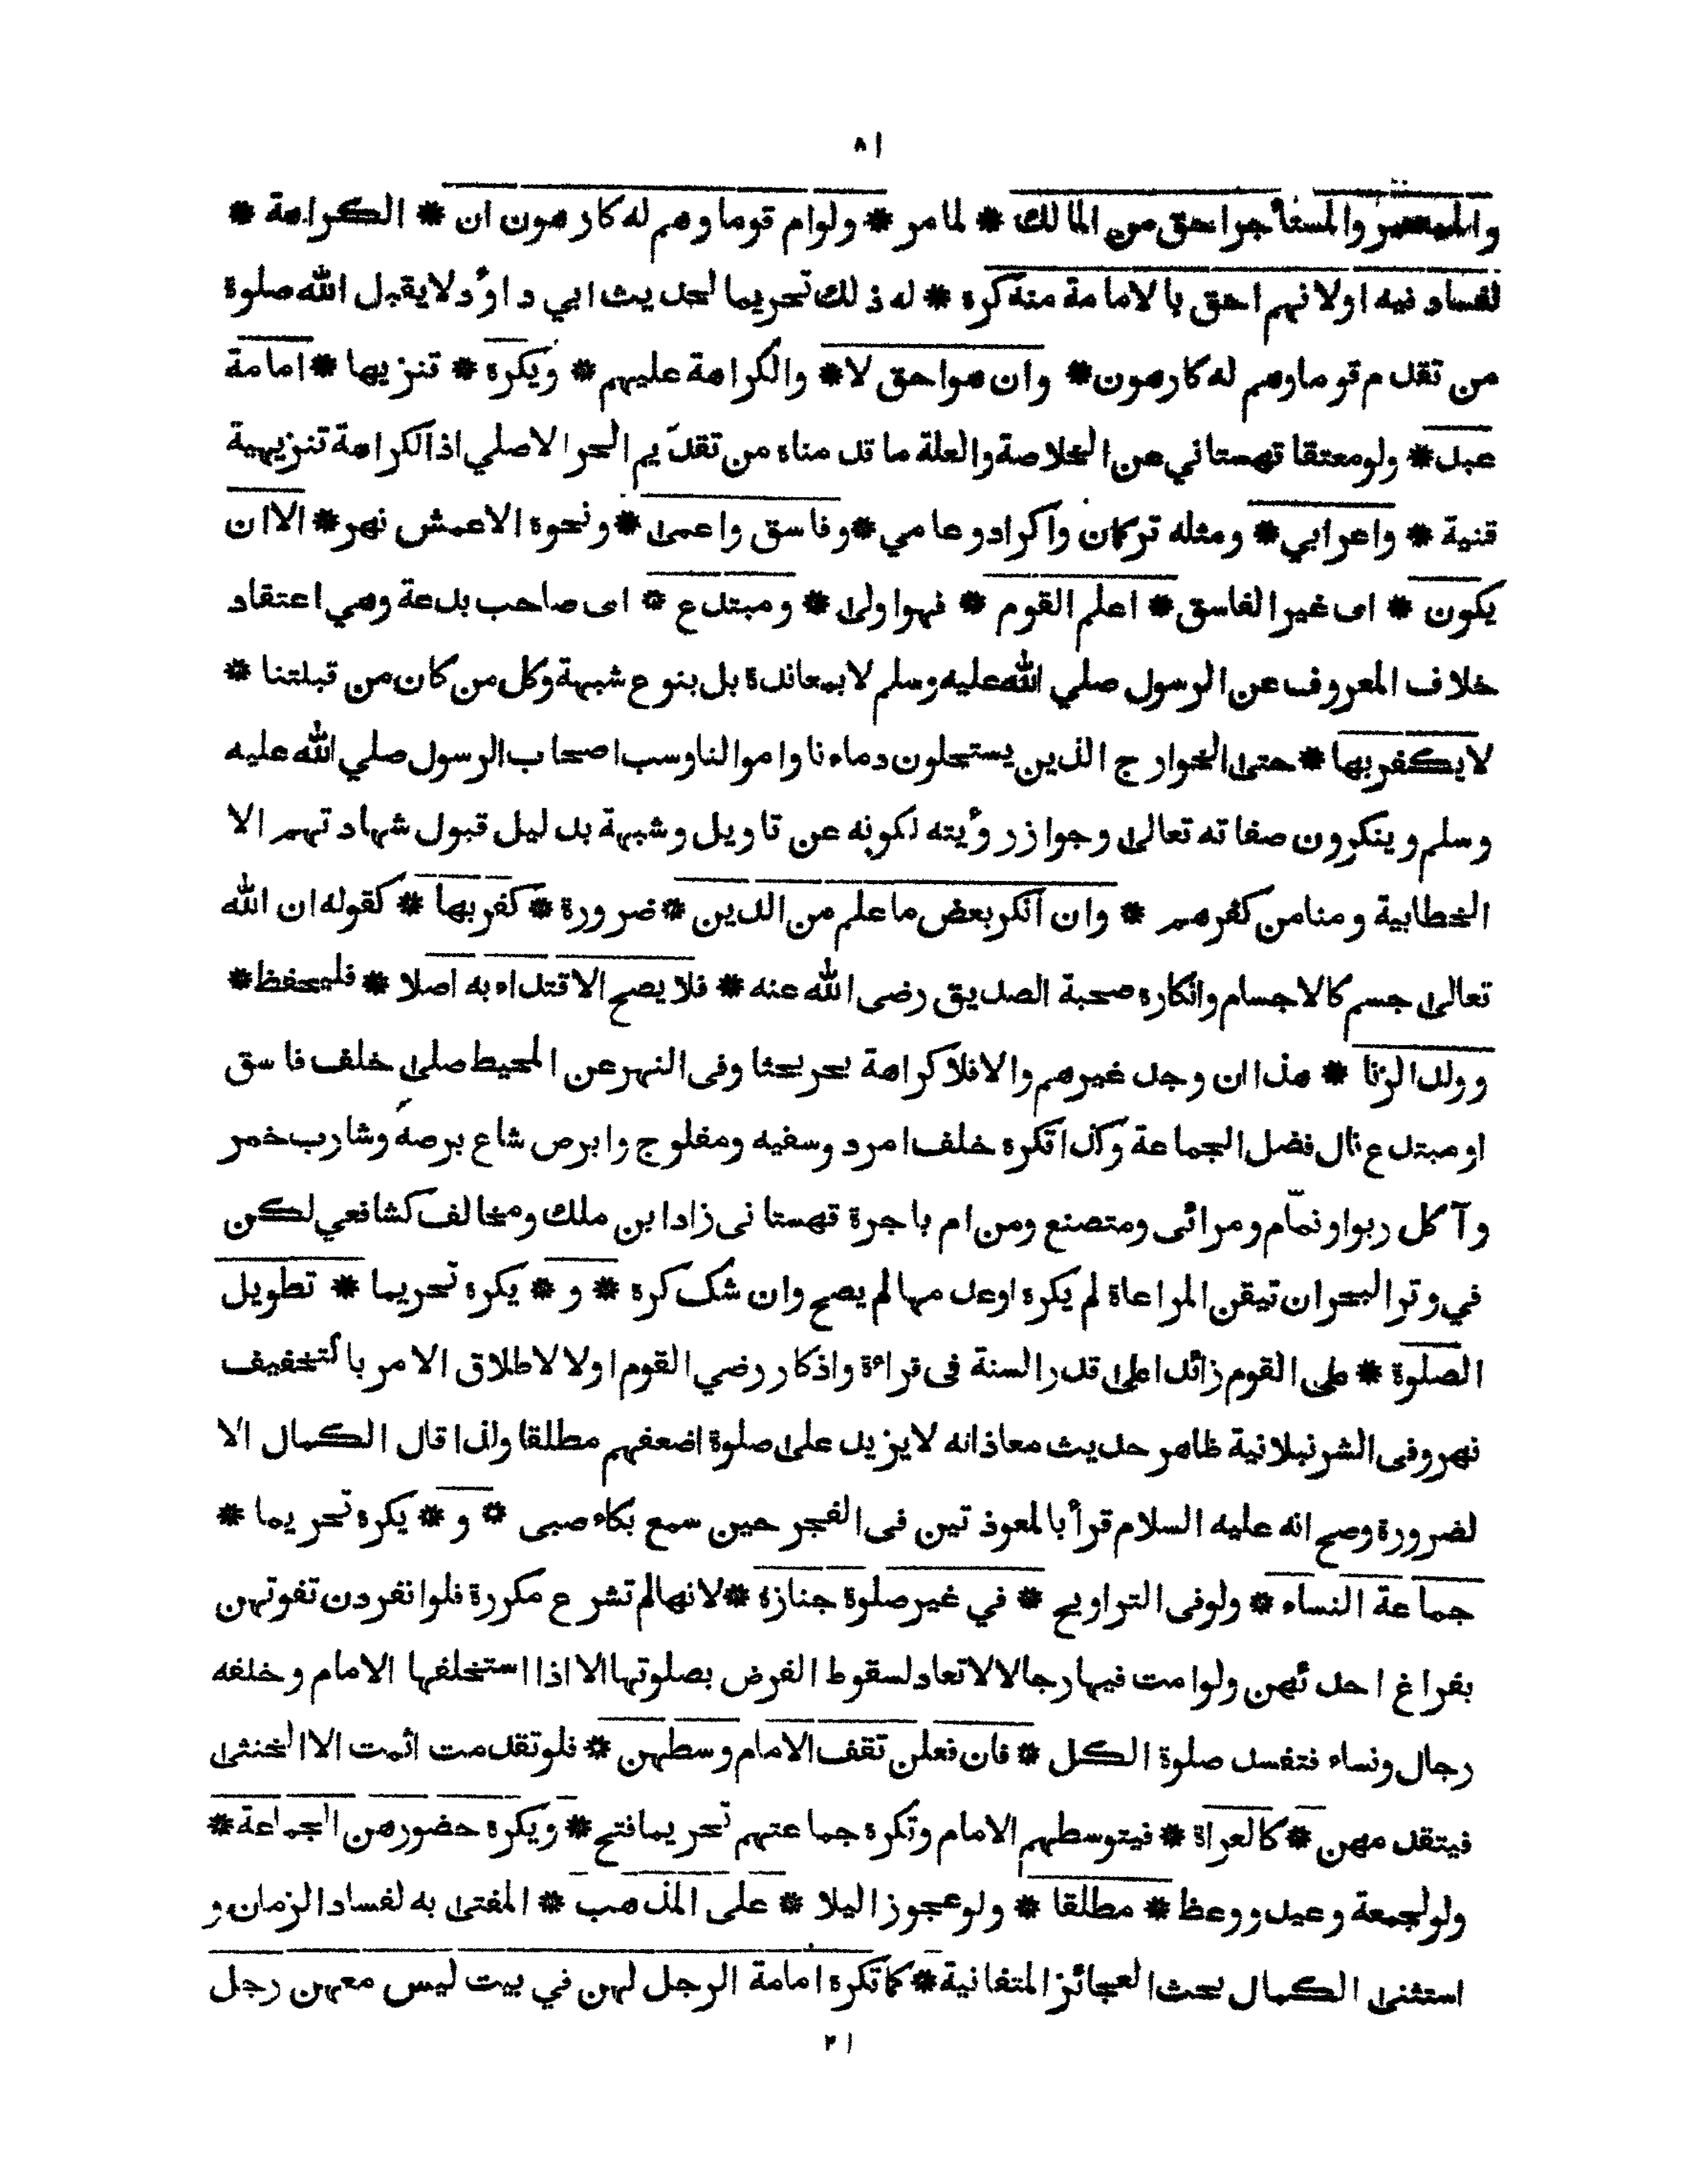 ٨١
والمستعير والمستأجر احق من المالك * لما مر * ولو ام قوما وهم له كارهون ان * الكراهة *
لفساد فيه او لانهم احق بالامامة منه كره * له ذلك تحريما لحديث ابي داؤد لا يقبل الله صلوة
من تقدم قوما وهم له كارهون * وان هو احق لا * والكراهة عليهم * ويكره * تنزيها * امامة
عبد * ولو معتقا قهستاني عن الخلاصة والعلة ما قدمناه من تقديم الحر الاصلي اذ الكراهة تنزيهية
قنية * واعرابي * ومثله تركمان واكراد وعامي * وفاسق واعمى * ونحوه الاعمش نهر * الا ان
يكون * اى غير الفاسق * اعلم القوم * فهو اولى * ومبتدع * اى صاحب بدعة وهي اعتقاد
خلاف المعروف عن الرسول صلي الله عليه وسلم لا بمعاندة بل بنوع شبهة وكل من كان من قبلتنا *
لا يكفر بها * حتى الخوارج الذين يستحلون دماءنا واموالنا وسب اصحاب الرسول صلي الله عليه
وسلم وينكرون صفاته تعالى وجواز رؤيته لكونه عن تاويل وشبهة بدليل قبول شهادتهم الا
الخطابية ومنا من كفرهم * وان انكر بعض ما علم من الدين * ضرورة * كفر بها * كقوله ان الله
تعالى جسم كالاجسام وانكاره صحبة الصديق رضى الله عنه * فلا يصح الاقتداء به اصلا * فليحفظ *
وولد الزنا * هذا ان وجد غيرهم والا فلا كراهة بحر بحثا وفى النهر عن المحيط صلى خلف فاسق
او مبتدع نال فضل الجماعة وكذا تكره خلف امرد وسفيه ومفلوج وابرص شاع برصه وشارب خمر
وآكل ربوا ونمّام ومرائى ومتصنع ومن ام باجرة قهستانى زاد ابن ملك ومخالف كشافعي لكن
في وتر البحر ان تيقن المراعاة لم يكره او عدمها لم يصح وان شك كره * و * يكره تحريما * تطويل
الصلوة * على القوم زائدا على قدر السنة فى قراءة واذكار رضي القوم اولا لاطلاق الامر بالتخفيف
نهر وفى الشرنبلانية ظاهر حديث معاذ انه لا يزيد على صلوة اضعفهم مطلقا ولذا قال الكمال الا
لضرورة وصح انه عليه السلام قرأ بالمعوذتين فى الفجر حين سمع بكاء صبى * و * يكره تحريما *
جماعة النساء * ولو فى التراويح * في غير صلوة جنازة * لانها لم تشرع مكررة فلو انفردن تفوتهن
بفراغ احدئهن ولو امت فيها رجالا لا تعاد لسقوط الفرض بصلوتها الا اذا استخلفها الامام وخلفه
رجال ونساء فتفسد صلوة الكل * فان فعلن تقف الامام وسطهن * فلو تقدمت اثمت الا الخنثى
فيتقدمهن * كالعراة * فيتوسطهم الامام وتكره جماعتهم تحريما فتح * ويكره حضورهن الجماعة *
ولو لجمعة وعيد ووعظ * مطلقا * ولو عجوزا ليلا * على المذهب * المفتى به لفساد الزمان و
استثنى الكمال بحث العجائز المتفانية * كما تكره امامة الرجل لهن في بيت ليس معهن رجل
٢١